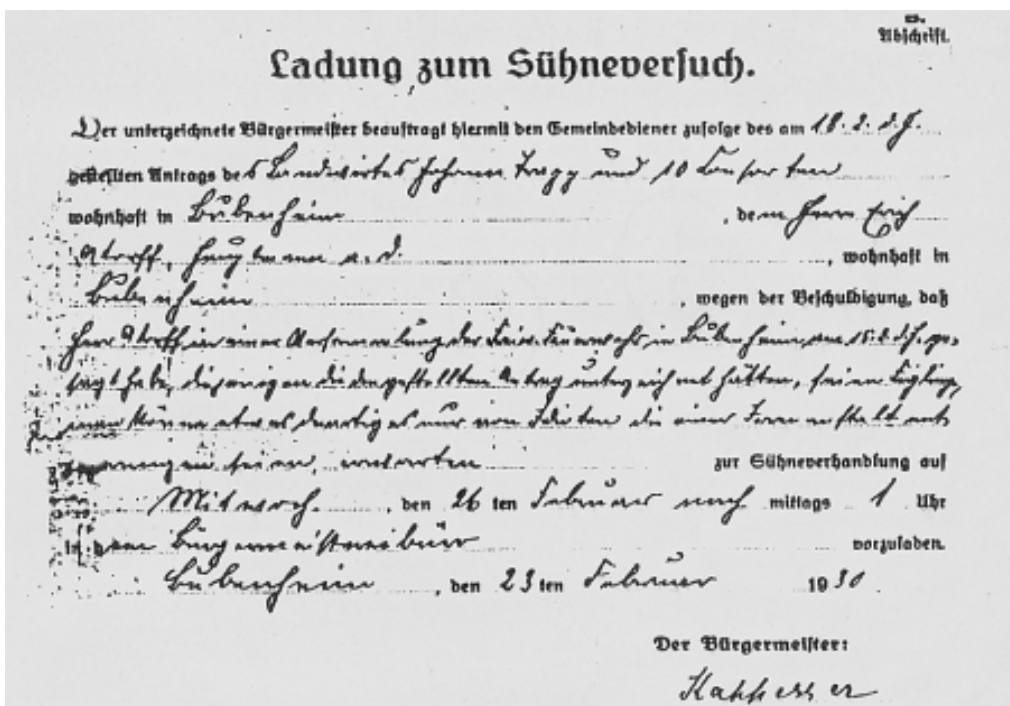 B.
Abschrift.
Ladung zum Sühneversuch.
Der unterzeichnete Bürgermeister beauftragt hiermit den Gemeindediener zufolge des am 18. 2. d. J.
gestellten Antrags des Landwirtes Johann Trapp und 10 Consorten
wohnhaft in Bubenheim, dem Herrn Erich
Atorff, Hauptmann a. d., wohnhaft in
Bubenheim, wegen der Beschuldigung, daß
Herr Atorff in einer Versammlung der Freiw. Feuerwehr in Bubenheim am 15. 2. d. J. ge-
sagt habe, diejenigen die den gestellten Antrag unterzeichnet hätten, seien
man könne etwas derartiges nur von Idioten die einer Irrenanstalt ent-
sprungen seien, erwarten zur Sühneverhandlung auf
Mittwoch, den 26 ten Februar nach mittags 1 Uhr
in dem Bürgermeistereibüro vorzuladen.
Bubenheim, den 23 ten Februar 1930
Der Bürgermeister: